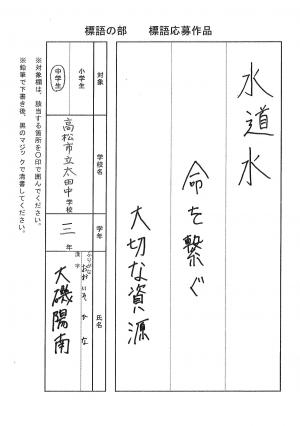 標語の部　　標語応募作品
水道水
命を繋ぐ
大切な資源
対象
小学生
中学生
学校名
高松市立太田中学校
学年
三年
氏名
ふりがな
おおいそ　ひな
漢字
大磯陽南
※対象欄は、該当する箇所を〇印で囲んでください。
※鉛筆で下書き後、黒のマジックで清書してください。